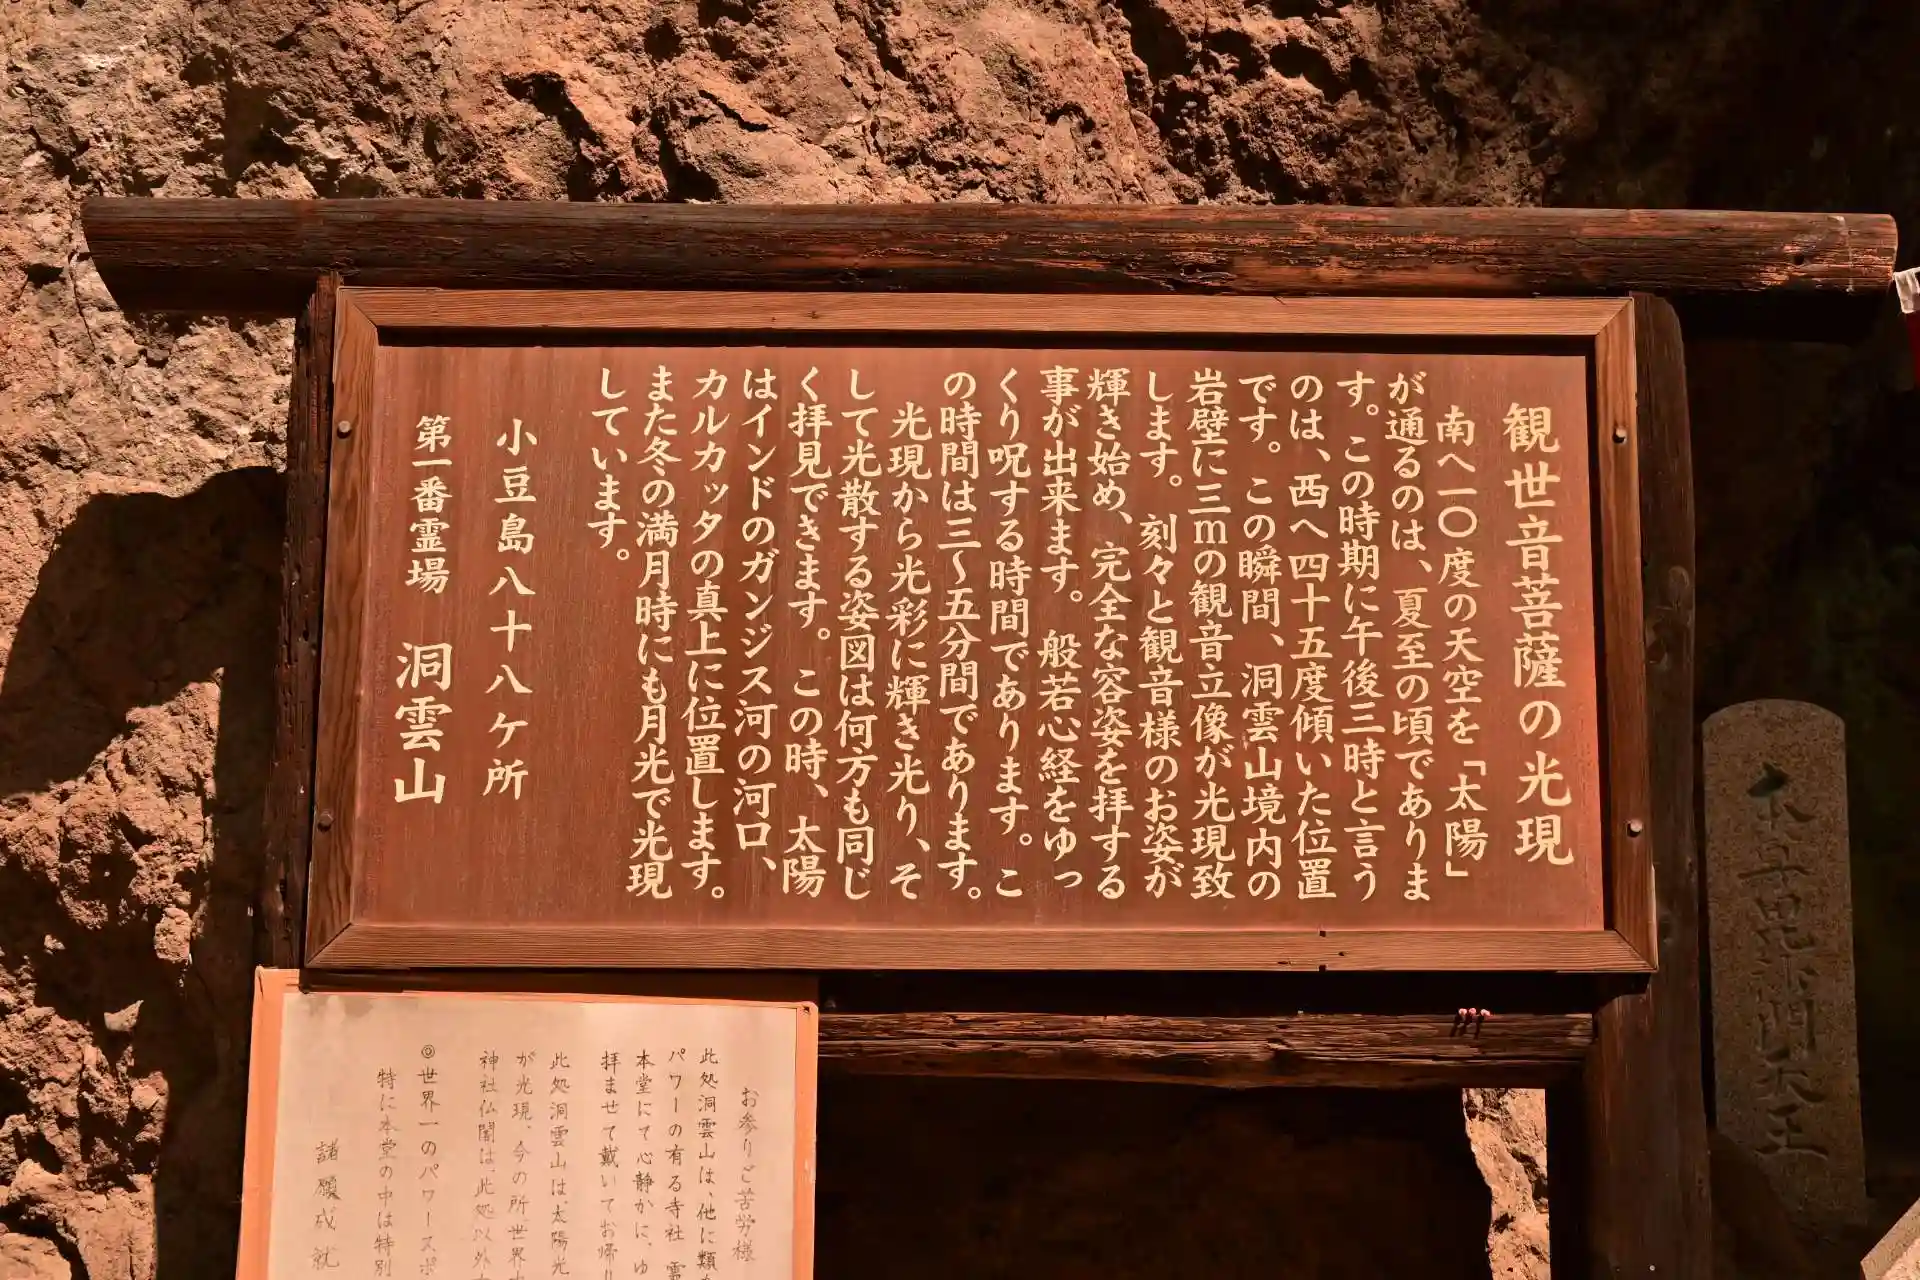 観世音菩薩の光現
南へ一〇度の天空を「太陽」
が通るのは、夏至の頃でありま
す。この時期に午後三時と言う
のは、西へ四十五度傾いた位置
です。この瞬間、洞雲山境内の
岩壁に三mの観音立像が光現致
します。刻々と観音様のお姿が
輝き始め、完全な容姿を拝する
事が出来ます。般若心経をゆっ
くり呪する時間であります。こ
の時間は三～五分間であります。
光現から光彩に輝き光り、そ
して光散する姿図は何方も同じ
く拝見できます。この時、太陽
はインドのガンジス河の河口、
カルカッタの真上に位置します。
また冬の満月時にも月光で光現
しています。
小豆島八十八ケ所
第一番霊場 洞雲山
お参りご苦労様
此処洞雲山は、他に類
パワーの有る寺社 霊
本堂にて心静かに、ゆ
拝ませて戴いてお帰り
此処洞雲山は、太陽光
が光現、今の所、世界中
神社仏閣は、此処以外
◎世界一のパワースポ
特に本堂の中は特別
諸願成就
毘沙門天王